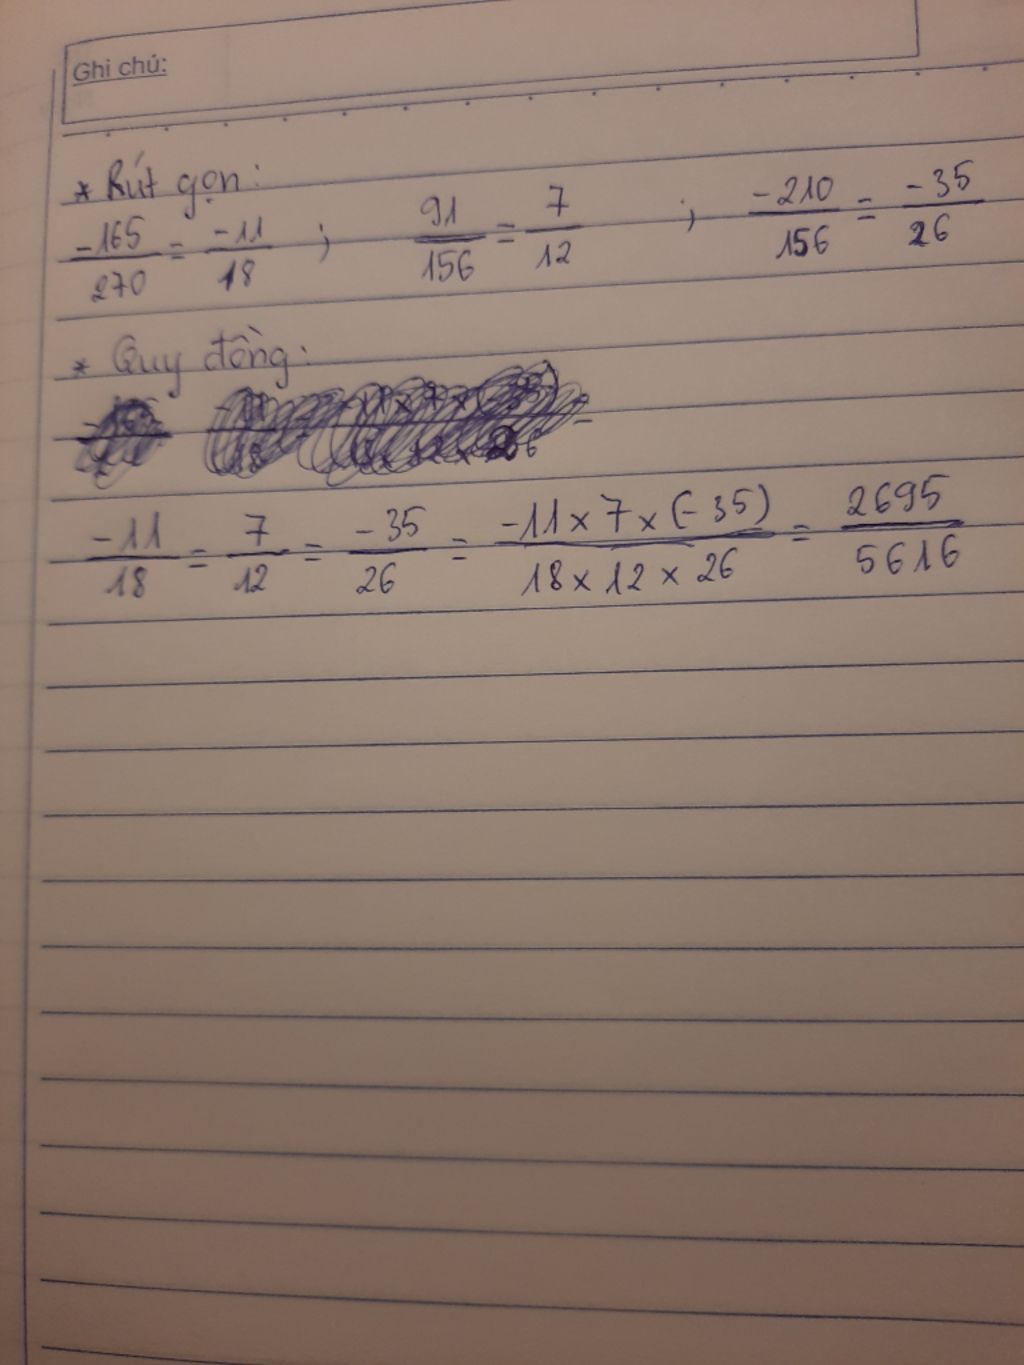 Ghi chú:
* Rút gọn:
-165/270 = -11/18 ; 91/156 = 7/12 ; -210/156 = -35/26
* Quy đồng:
-11/18 = 7/12 = -35/26 = -11 x 7 x (-35)/18 x 12 x 26 = 2695/5616